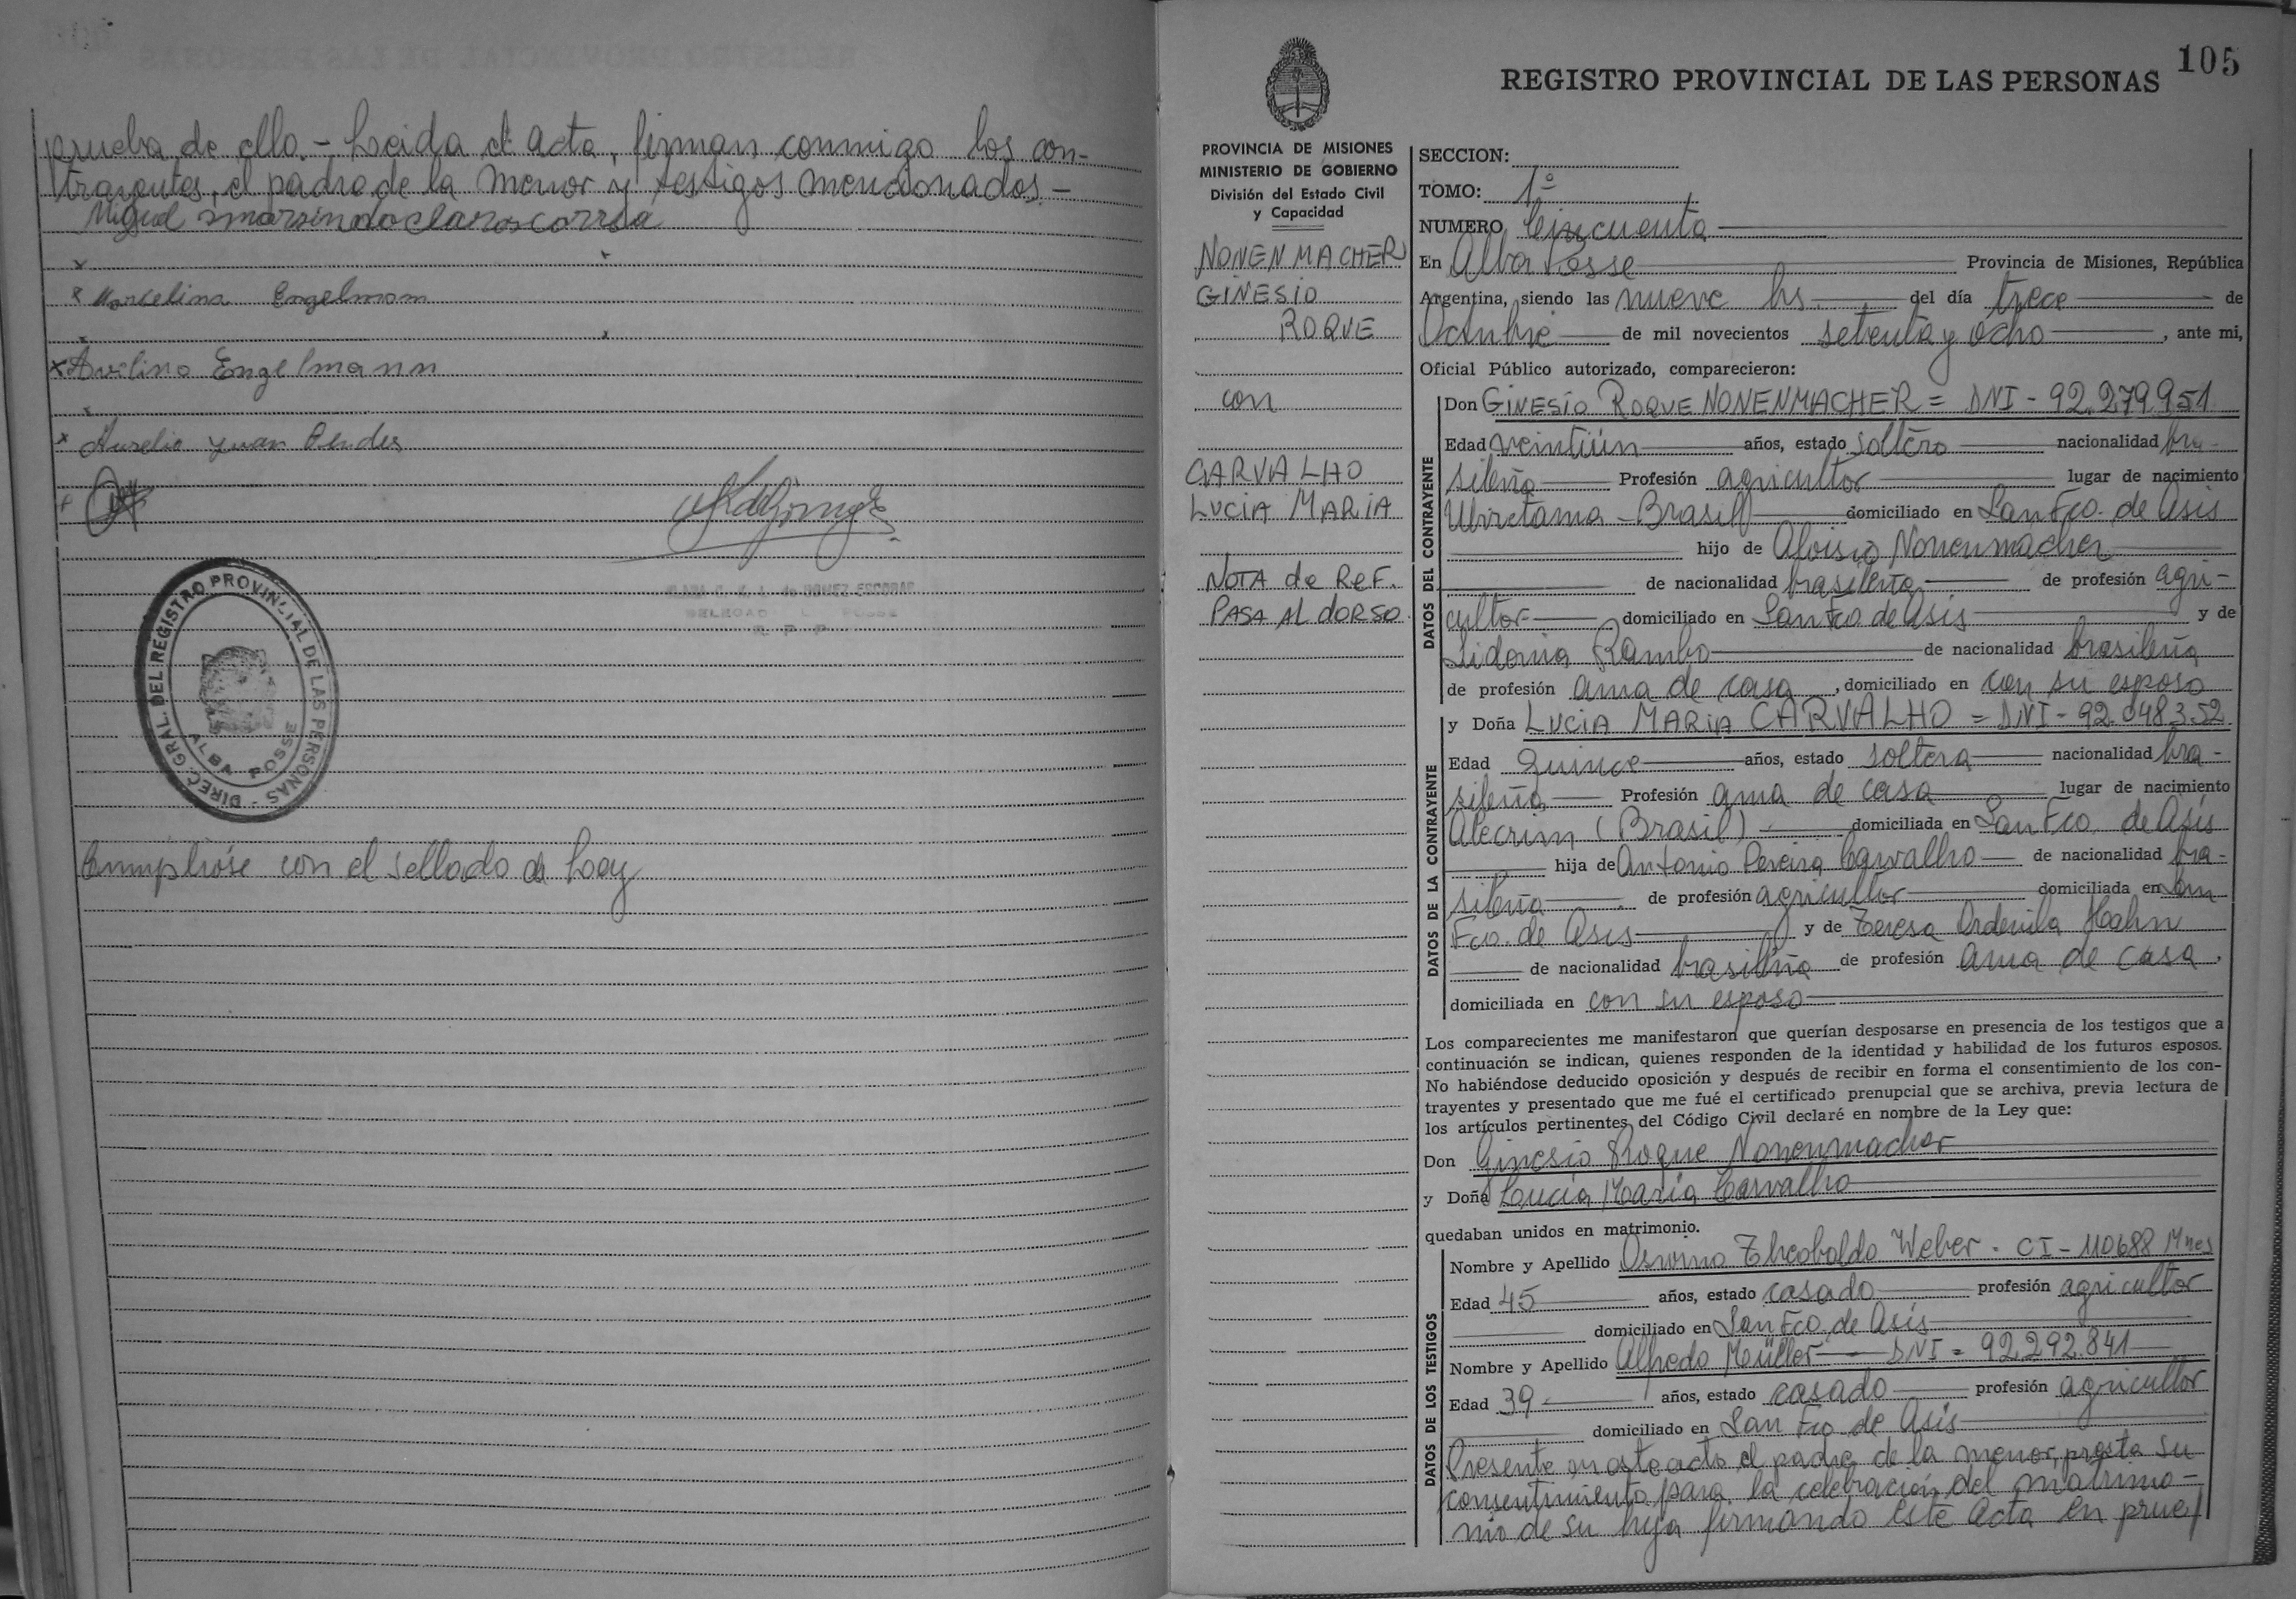 prueba de ello.- Leida el acta, firman conmigo los con-
trayentes, el padre de la menor y testigos mencionados.-
Miguel
x Marcelina Engelmann
x Avelino Engelmann
x Aurelio Juan
DIREC. GRAL. DEL REGISTRO PROVINCIAL DE LAS PERSONAS -
ALBA POSSE
de GOMEZ ESCOBAR
POSSE
R. P. P.
Cumplióse con el sellado de Ley
105
REGISTRO PROVINCIAL DE LAS PERSONAS
PROVINCIA DE MISIONES
MINISTERIO DE GOBIERNO
División del Estado Civil
y Capacidad
NONENMACHER
GINESIO
ROQUE
con
CARVALHO
LUCIA MARIA
NOTA de REF.
PASA AL dORSO
SECCION:
TOMO: 1º
NUMERO Cincuenta
En Alba Posse Provincia de Misiones, República
Argentina, siendo las nueve hs. del día trece de
Octubre de mil novecientos setenta y ocho, ante mi,
Oficial Público autorizado, comparecieron:
DATOS DEL CONTRAYENTE
Don GINESIO ROQUE NONENMACHER = DNI - 92.279.951
Edad veintiún años, estado soltero nacionalidad bra-
sileña Profesión agricultor lugar de nacimiento
Ubiretama - Brasil domiciliado en San Fco. de Asis
hijo de Aloisio Nonenmacher
de nacionalidad brasileña de profesión agri-
cultor domiciliado en San Fco de Asis y de
Lidonia Rambo de nacionalidad brasileña
de profesión ama de casa, domiciliado en con su esposo
DATOS DE LA CONTRAYENTE
y Doña LUCIA MARIA CARVALHO = DNI - 92.048.352
Edad Quince años, estado soltera nacionalidad bra-
sileña Profesión ama de casa lugar de nacimiento
Alecrim (Brasil) domiciliada en San Fco. de Asis
hija de Antonio Pereira Carvalho de nacionalidad bra-
sileña de profesión agricultor domiciliada en San
Fco. de Asis y de Teresa Ordenila Hahn
de nacionalidad brasileña de profesión ama de casa,
domiciliada en con su esposo
Los comparecientes me manifestaron que querían desposarse en presencia de los testigos que a
continuación se indican, quienes responden de la identidad y habilidad de los futuros esposos.
No habiéndose deducido oposición y después de recibir en forma el consentimiento de los con-
trayentes y presentado que me fué el certificado prenupcial que se archiva, previa lectura de
los artículos pertinentes del Código Civil declaré en nombre de la Ley que:
Don Ginesio Roque Nonenmacher
y Doña Lucia Maria Carvalho
quedaban unidos en matrimonio.
DATOS DE LOS TESTIGOS
Nombre y Apellido Osvino Theobaldo Weber - CI - 110688 Mnes
Edad 45 años, estado casado profesión agricultor
domiciliado en San Fco. de Asis
Nombre y Apellido Alfredo Müller - DNI = 92.292.841
Edad 39 años, estado casado profesión agricultor
domiciliado en San Fco. de Asis
Presente en este acto el padre de la menor, presta su
consentimiento para la celebracion del matrimo-
nio de su hija firmando este acta en prue/